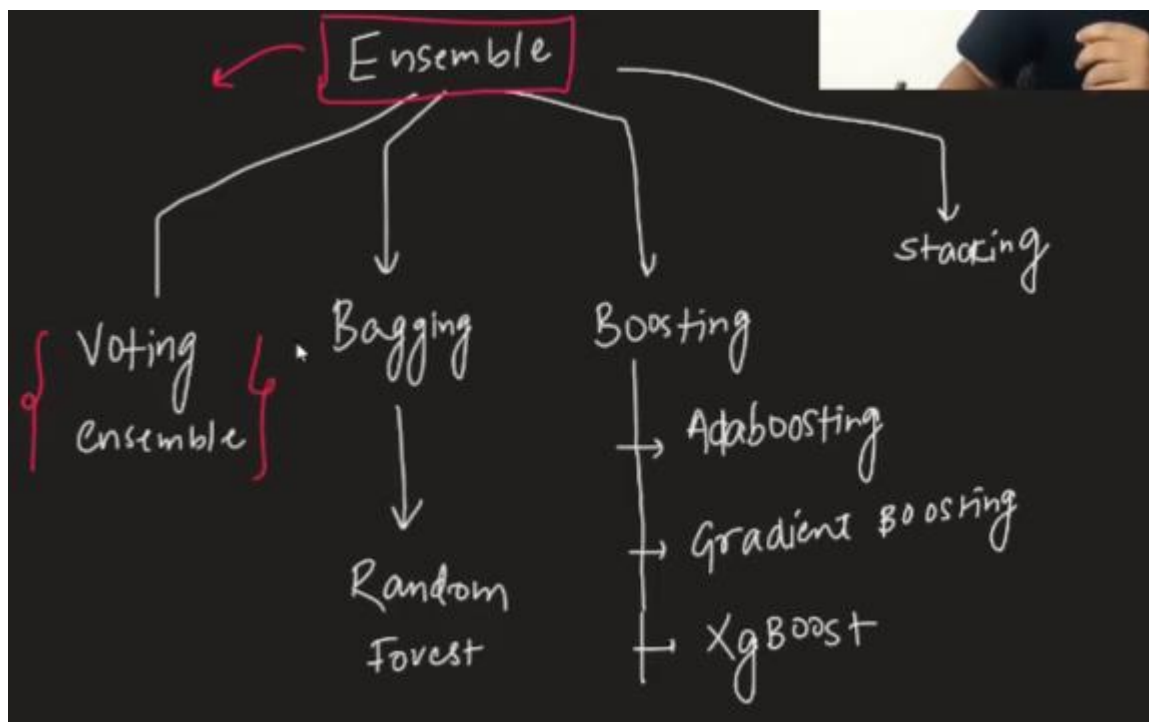 Ensemble
Stacking
Voting
ensemble
Bagging
Random
Forest
Boosting
Adaboosting
Gradient Boosting
XgBoost